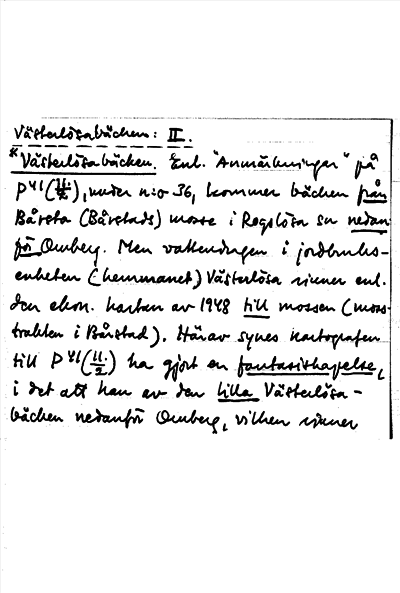 Västerlösabäcken: II.
*Västerlösabäcken. Enl. "Anmärkningar" på
P41(11/2), under n:o 36, kommer bäcken från
Bårsta (Bårstads) mosse i Rogslösa sn nedan-
för Omberg. Men vattendragen i jordbruks-
enheten (hemmanet) Västerlösa rinner enl.
den ekon. kartan av 1948 till mossen (moss-
trakten i Bårstad). Härav synes kartografen
till P41(11/2) ha gjort en fantasiskapelse,
i det att han av den lilla Västerlösa-
bäcken nedanför Omberg, vilken rinner